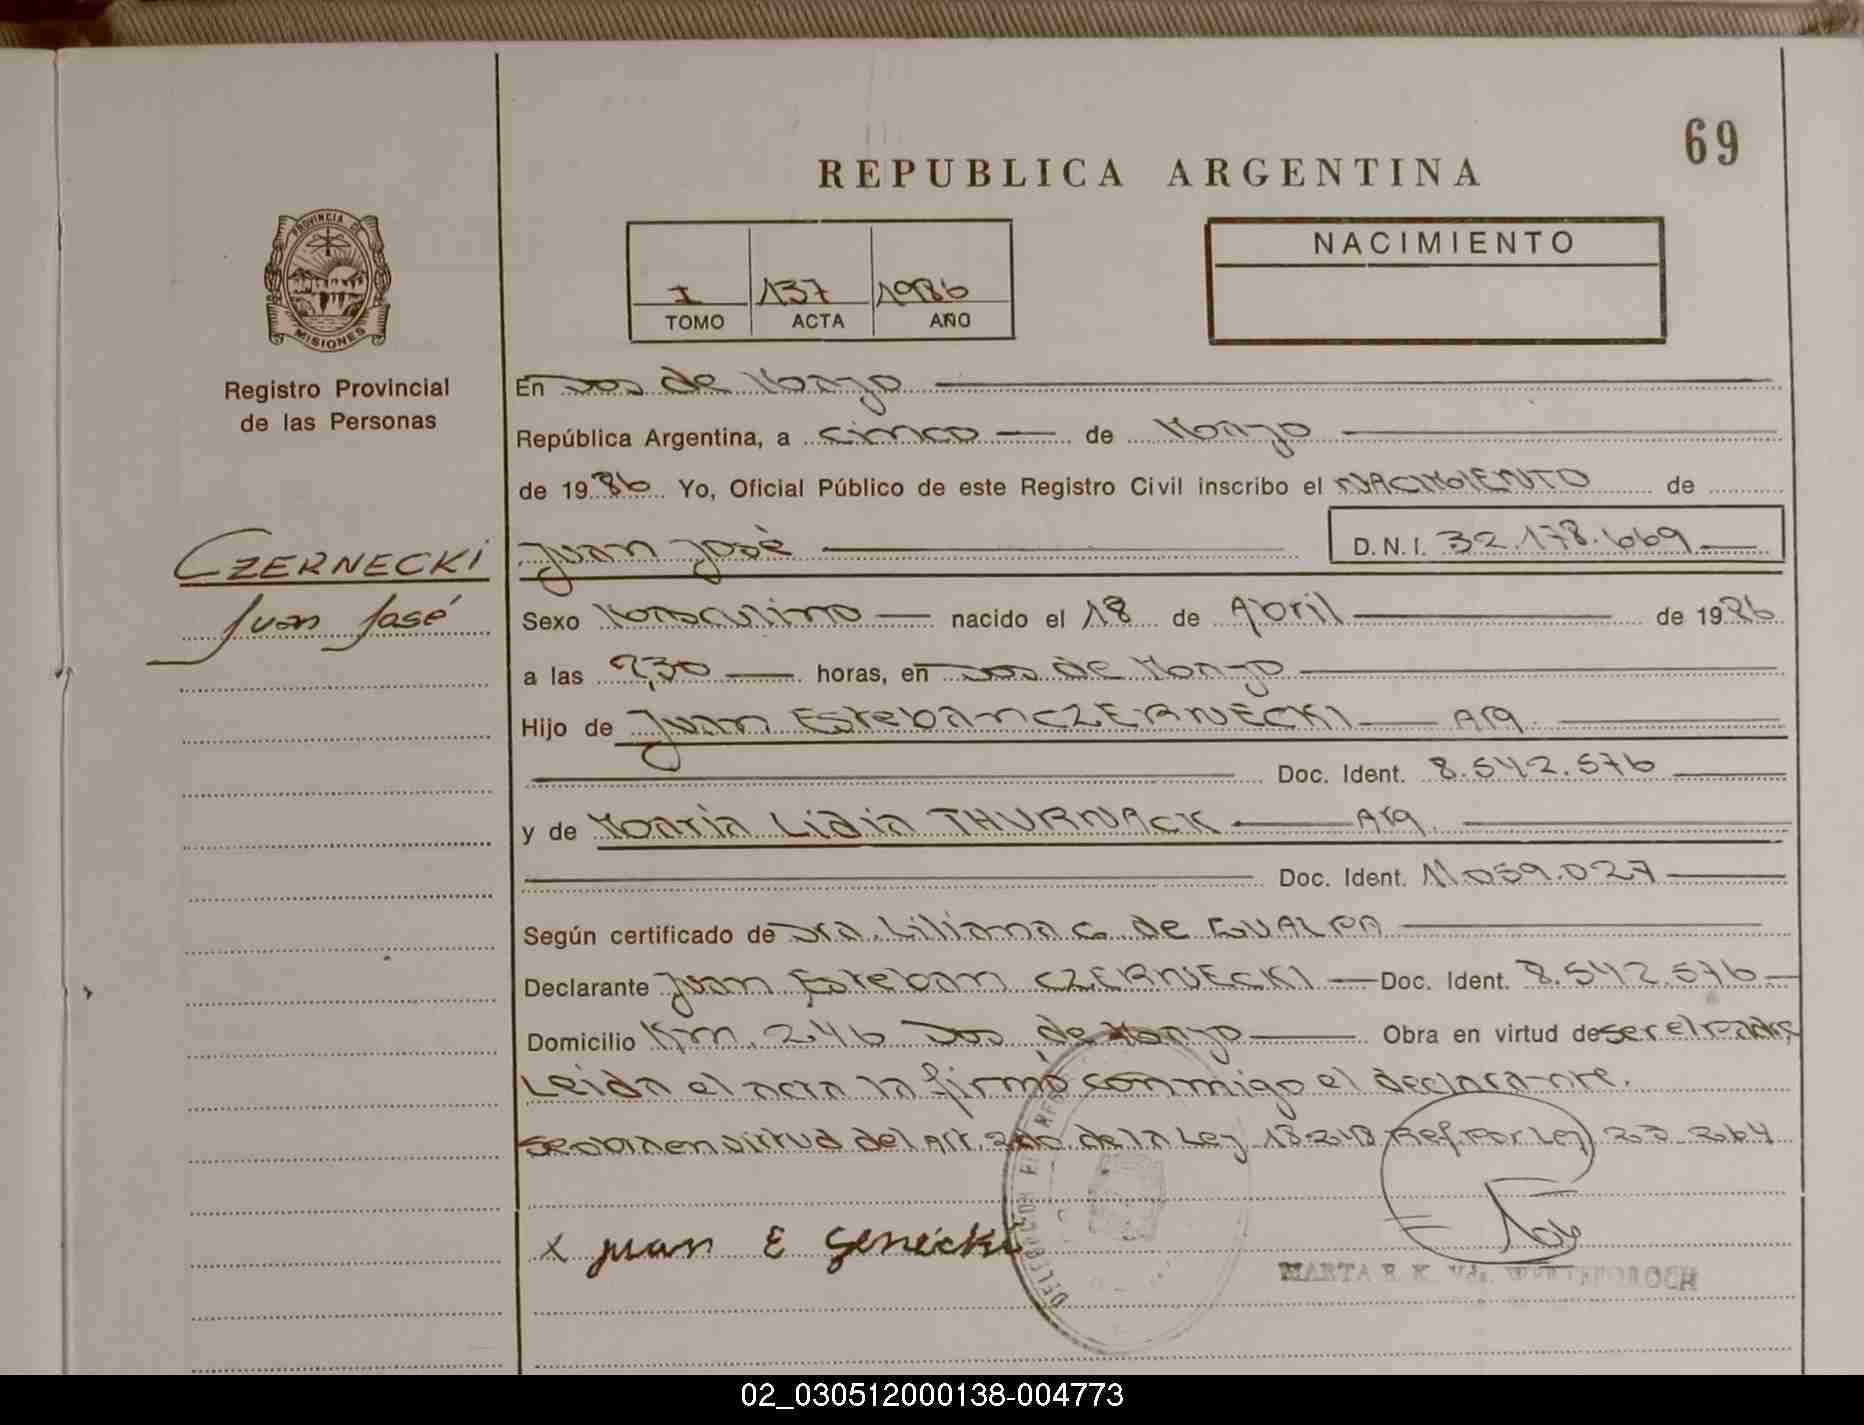 69
REPUBLICA ARGENTINA
PROVINCIA DE
MISIONES
Registro Provincial
de las Personas
I 137 1986
TOMO ACTA AÑO
NACIMIENTO
En Dos de Mayo
República Argentina, a cinco de Mayo
de 1986 Yo, Oficial Público de este Registro Civil inscribo el NACIMIENTO de
CZERNECKI
Juan José
Juan José D.N.I. 32.178.669
Sexo Masculino nacido el 18 de Abril de 1986
a las 2,30 horas, en Dos de Mayo
Hijo de Juan Esteban CZERNECKI Arg.
Doc. Ident. 8.542.576
y de Maria Lidia THURNACK Arg.
Doc. Ident. 11.059.027
Según certificado de Dra. Liliana G. de GUALPA
Declarante Juan Esteban CZERNECKI Doc. Ident. 8.542.576
Domicilio Km. 246 Dos de Mayo Obra en virtud de ser el Padre,
Leida el acta la firma conmigo el declarante.
en virtud del Art. 2do de la Ley 18248 Ref. por Ley 23.264
x juan E Senecki
MARTA E. K. Vda.
02_030512000138-004773